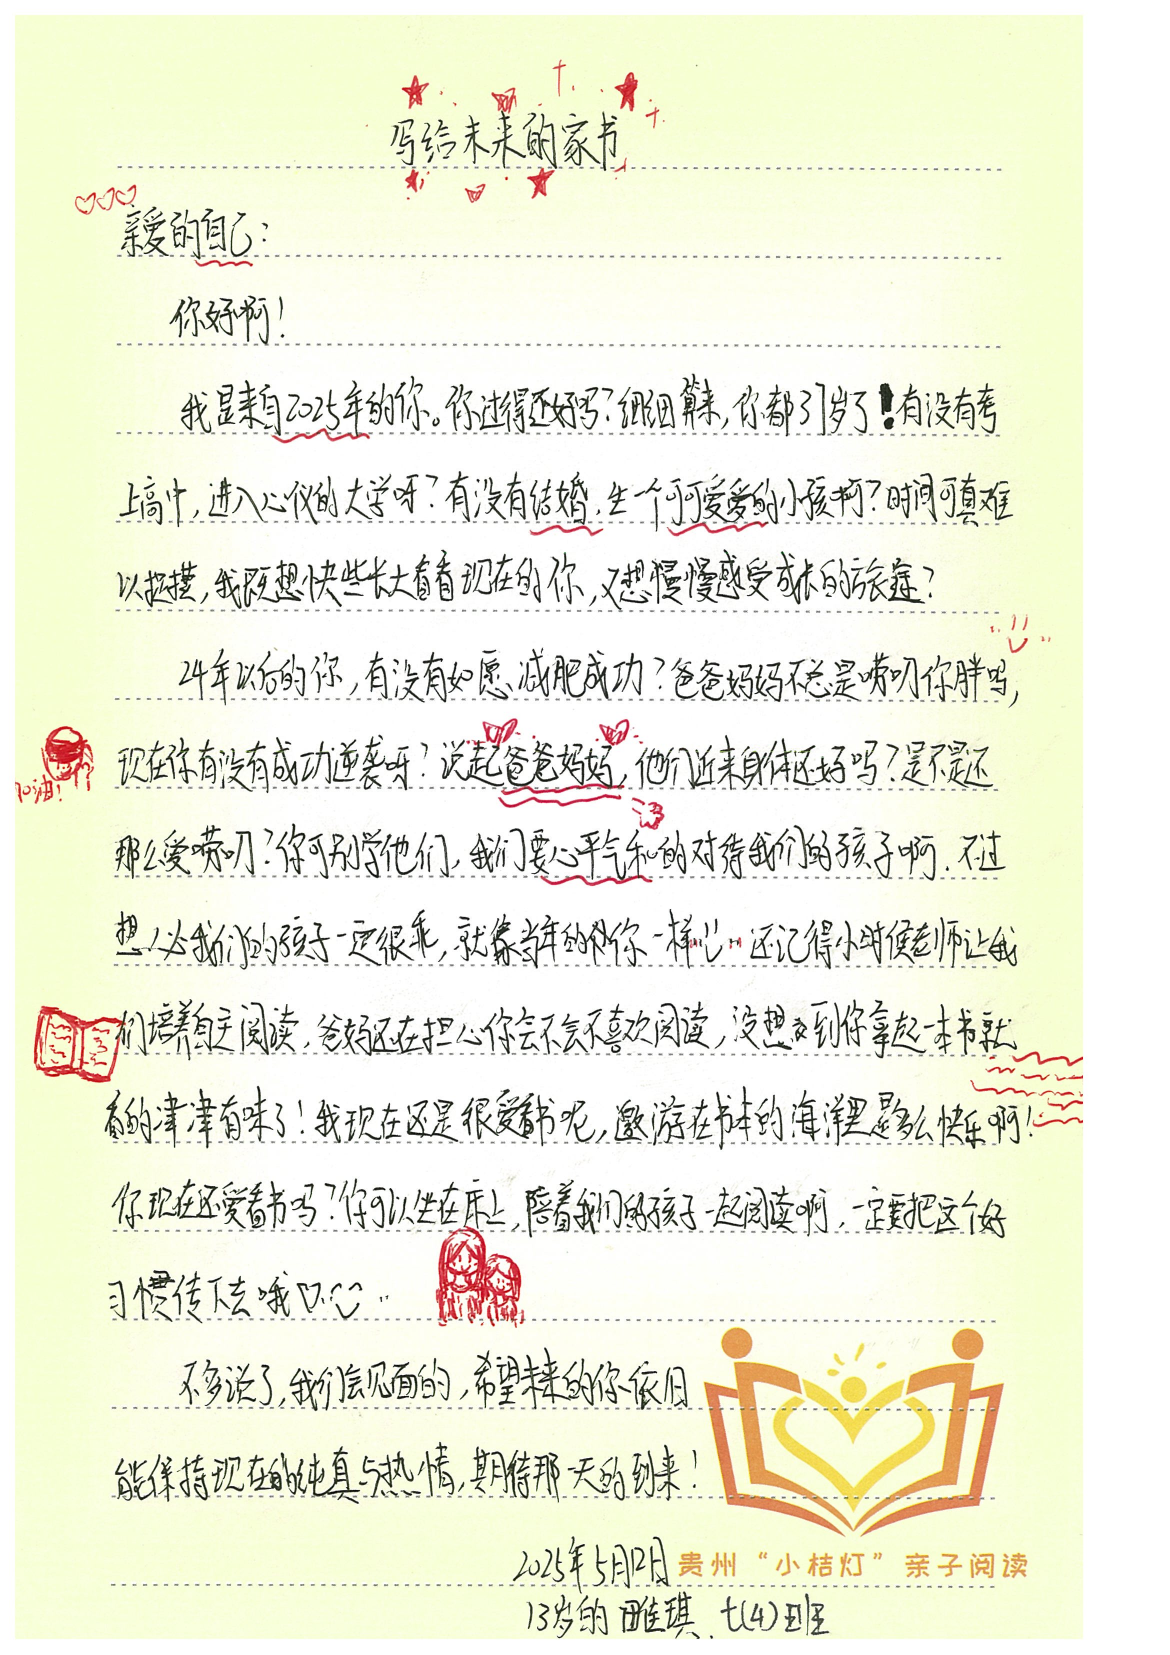 写给未来的家书
亲爱的自己：
你好啊！
我是来自2025年的你。你过得还好吗？细细算来，你都37岁了！有没有考
上高中，进入心仪的大学呀？有没有结婚，生一个可可爱爱的小孩啊？时间可真难
以捉摸，我既想快些长大看看现在的你，又想慢慢感受成长的旅途？
24年以后的你，有没有如愿减肥成功？爸爸妈妈不总是唠叨你胖吗，
现在你有没有成功逆袭呀？说起爸爸妈妈，他们近来身体还好吗？是不是还
加油！
那么爱唠叨？你可别学他们，我们要心平气和的对待我们的孩子啊．不过
想必我们的孩子一定很乖，就像当年的你一样 还记得小时候老师让我
们培养自主阅读，爸妈还在担心你会不会不喜欢阅读，没想到你拿起一本书就
看的津津有味了！我现在还是很爱看书呢，遨游在书本的海洋里是多么快乐啊！
你现在还爱看书吗？你可以坐在床上，陪着我们的孩子一起阅读啊，一定要把这个好
习惯传下去哦
不多说了，我们会见面的，希望未来的你依旧
能保持现在的纯真与热情，期待那一天的到来！
2025年5月12日
贵州“小桔灯”亲子阅读
13岁的 雅琪．七(4)班